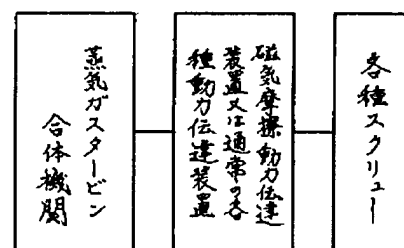 蒸気ガスタービン
合体機関
磁気摩擦動力伝達
装置又は通常の各
種動力伝達装置
各種スクリュー